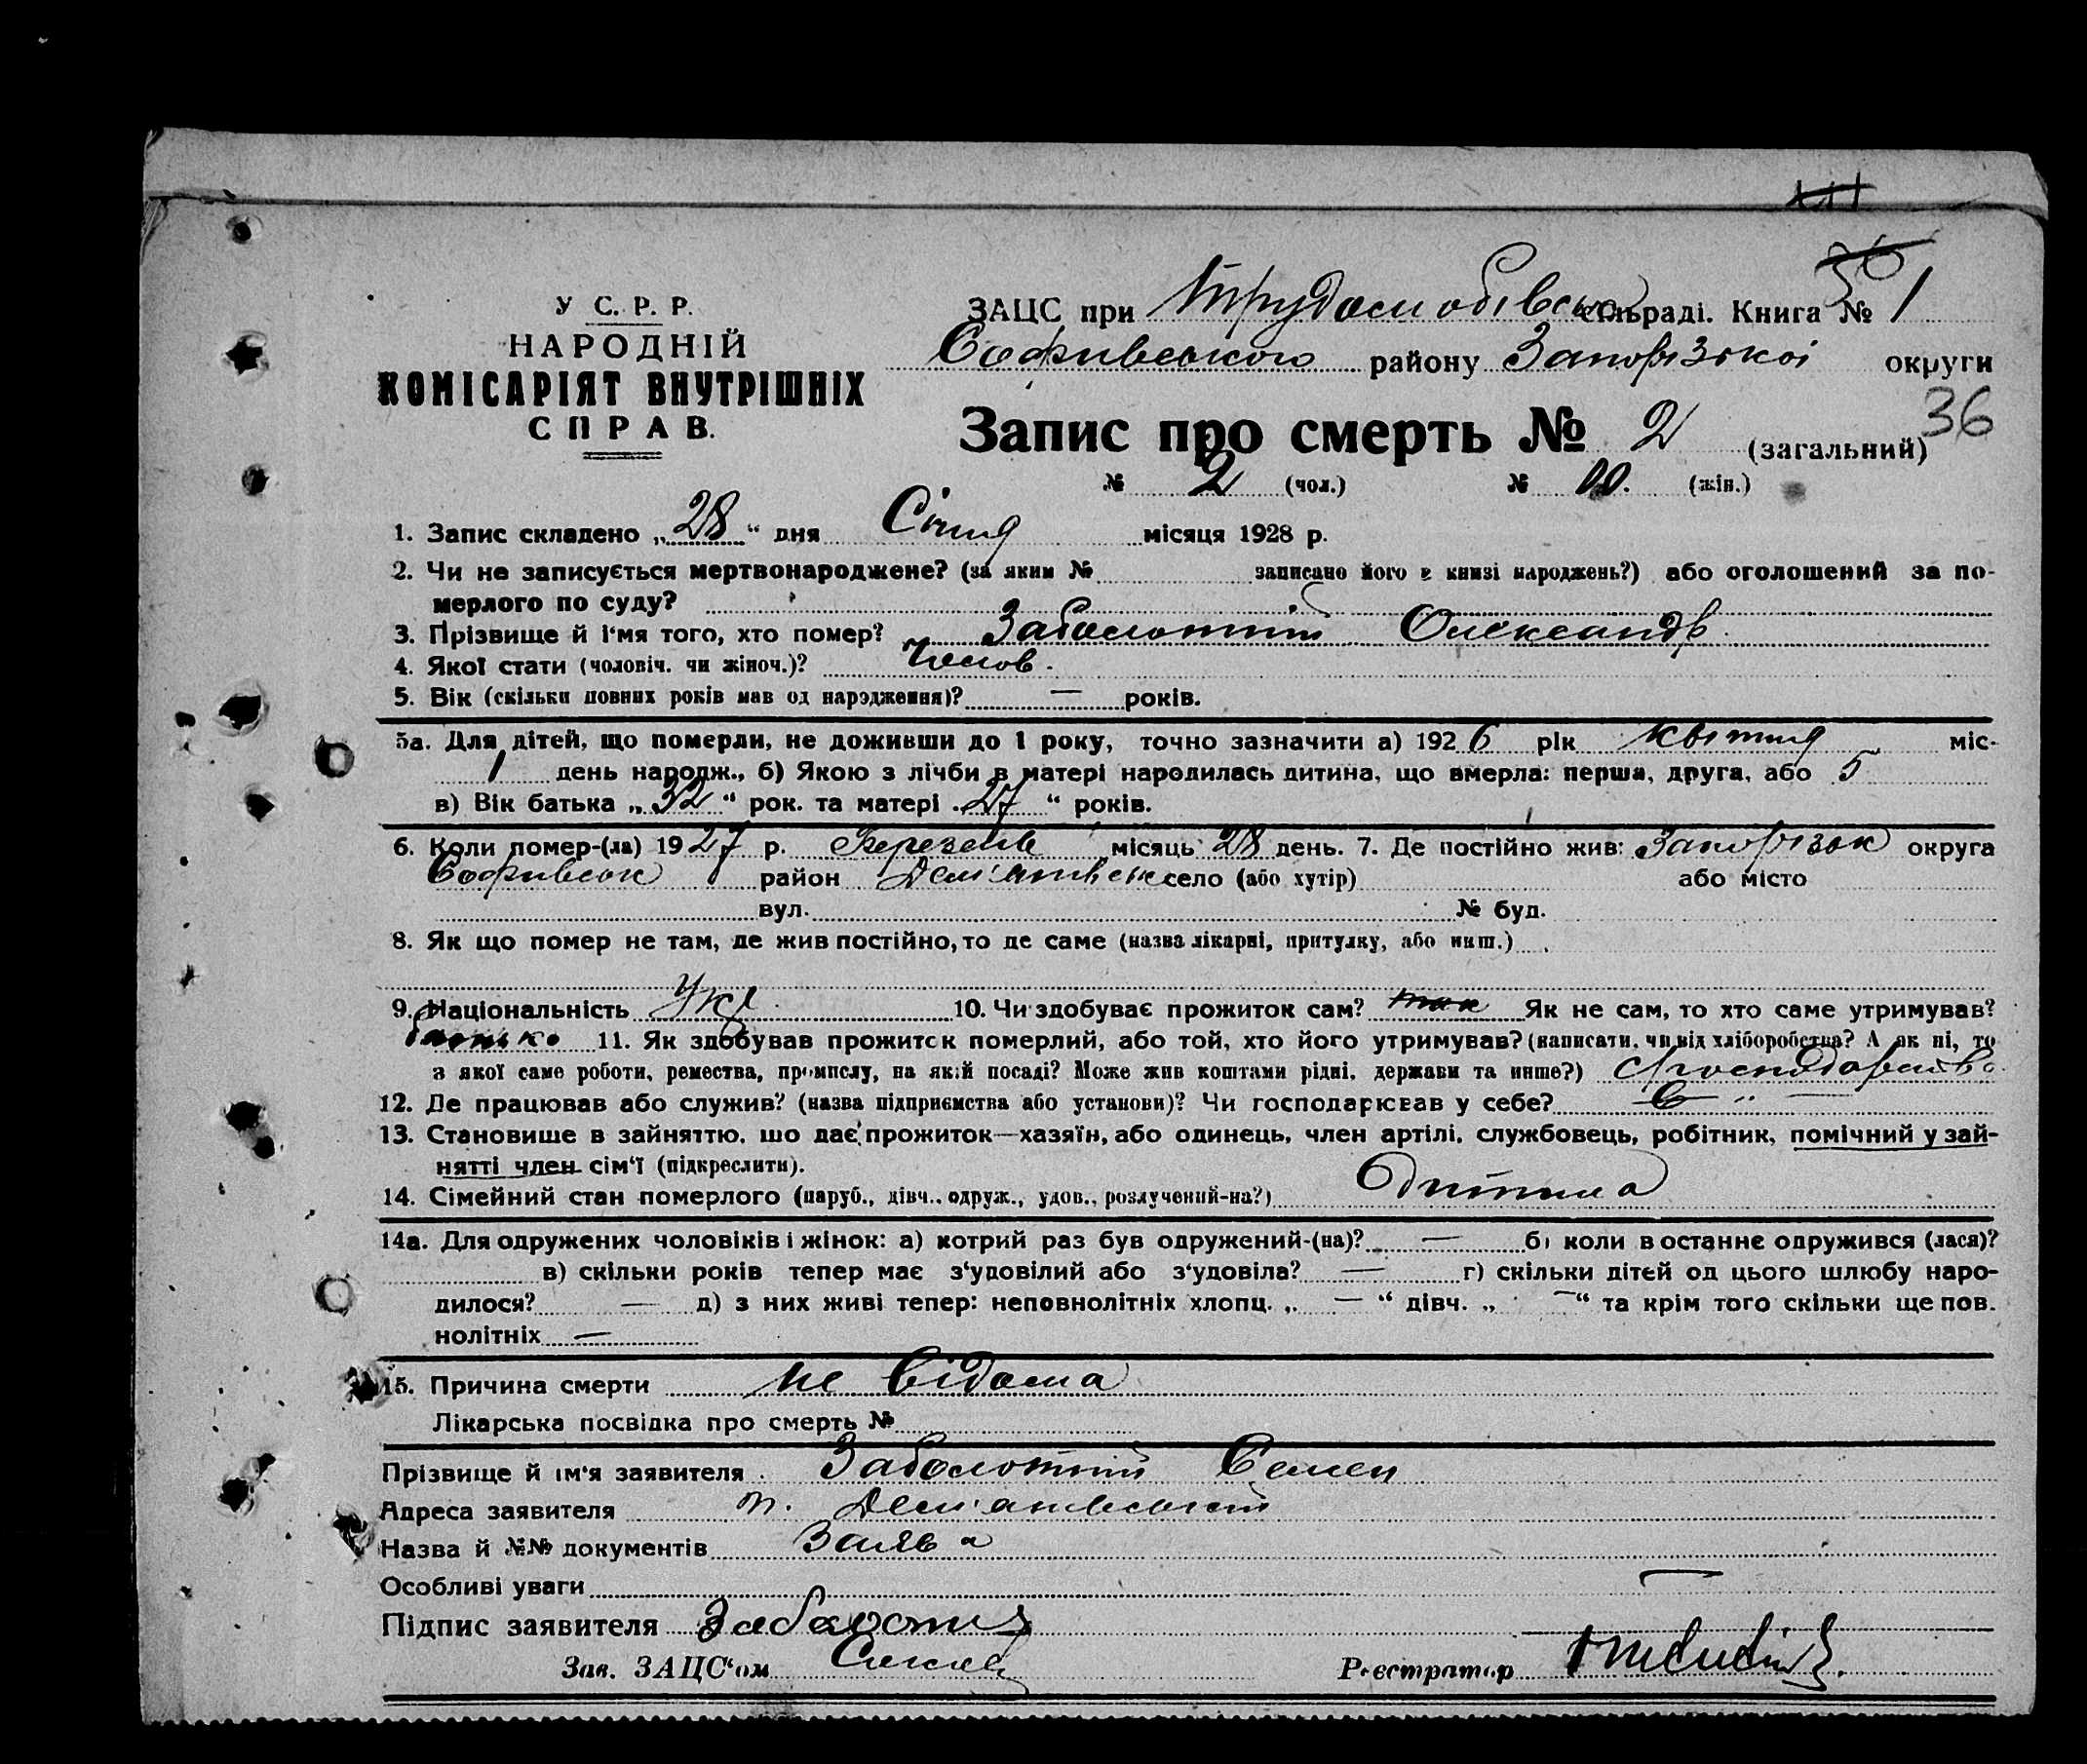 У С. Р. Р.
НАРОДНІЙ
КОМІСАРІЯТ ВНУТРІШНІХ
СПРАВ.
ЗАЦС при Трудолюбівськ сільраді. Книга № 1
Софиївського району Запорізької округи
36
Запис про смерть № 2 (загальний)
№ 2 (чол.) № 00. (жін.)
1. Запис складено „28“ дня Січня місяця 1928 р.
2. Чи не записується мертвонароджене? (за яким № записано його в книзі народжень?) або оголошений за по-
мерлого по суду?
3. Прізвище й і'мя того, хто помер? Заболотній Олександр
4. Якої стати (чоловіч. чи жіноч.)? Чолов.
5. Вік (скільки повних років мав од народження)? — років.
5а. Для дітей, що померли, не доживши до 1 року, точно зазначити а) 1926 рік квітня міс-
1 день народж., б) Якою з лічби в матері народилась дитина, що вмерла: перша, друга, або 5
в) Вік батька „32“ рок. та матері „27“ років.
6. Коли помер-(ла) 1927 р. Березень місяць 28 день. 7. Де постійно жив: Запорізьк округа
Софивськ район Дем'янівськ село (або хутір) або місто
вул. № буд.
8. Як що помер не там, де жив постійно, то де саме (назва лікарні, притулку, або инш.)
9. Національність Укр. 10. Чи здобуває прожиток сам? так Як не сам, то хто саме утримував?
батько 11. Як здобував прожиток померлий, або той, хто його утримував? (написати, чи від хліборобства? А як ні, то
з якої саме роботи, ремества, промислу, на якій посаді? Може жив коштами рідні, держави та инше?) господарство
12. Де працював або служив? (назва підприємства або установи)? Чи господарював у себе? „ —
13. Становище в зайняттю, що дає прожиток—хазяїн, або одинець, член артілі, службовець, робітник, помічний у зай-
нятті член сім'ї (підкреслити).
14. Сімейний стан померлого (паруб., дівч., одруж., удов., розлучений-на?) Дитина
14а. Для одружених чоловіків і жінок: а) котрий раз був одружений-(на)? — б) коли в останнє одружився (лася)?
в) скільки років тепер має з'удовілий або з'удовіла? — г) скільки дітей од цього шлюбу наро-
дилося? — д) з них живі тепер: неповнолітніх хлопц. „ — “ дівч. „ — “ та крім того скільки ще пов.
нолітніх —
15. Причина смерти не відома
Лікарська посвідка про смерть №
Прізвище й ім'я заявителя Заболотній Семен
Адреса заявителя п. Дем'янівський
Назва й №№ документів Заява
Особливі уваги —
Підпис заявителя
Зав. ЗАЦС'ом Реєстратор